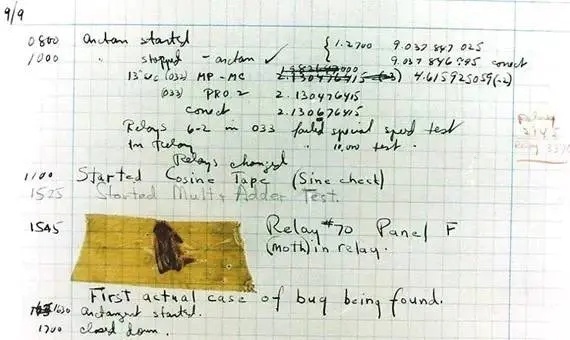 9/9
0800 Antan started { 1.2700 9.037 847 025
1000 " stopped - antan ✓ 9.037 846 795 conect
13"uc (032) MP-MC 2.130476415 (-3) 4.615925059(-2)
(033) PRO 2 2.130476415
conect 2.130676415
Relays 6-2 in 033 failed special speed test
In Relay " 10,000 test.
Relay
2145
Relay 3370
Relays changed
1100 Started Cosine Tape (Sine check)
1525 Started Mult + Adder Test.
1545 Relay #70 Panel F
(moth) in relay.
First actual case of bug being found.
1630 antangent started.
1700 closed down.